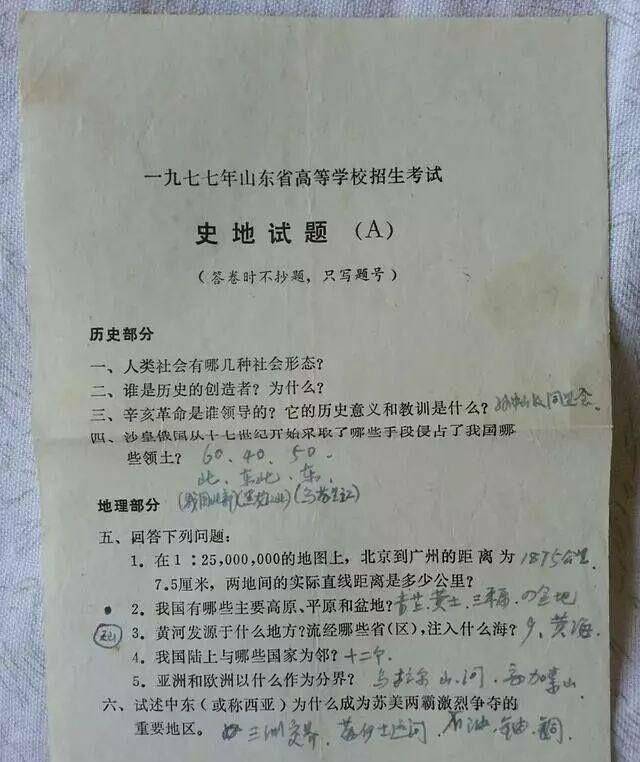 一九七七年山东省高等学校招生考试
史地试题（A）
（答卷时不抄题，只写题号）
历史部分
一、人类社会有哪几种社会形态？
二、谁是历史的创造者？为什么？
三、辛亥革命是谁领导的？它的历史意义和教训是什么？
四、沙皇俄国从十七世纪开始采取了哪些手段侵占了我国哪
些领土？ 60、40、50、
北、东北、东
地理部分
五、回答下列问题：
1．在1：25,000,000的地图上，北京到广州的距离为 1875公里
7.5厘米，两地间的实际直线距离是多少公里？
2．我国有哪些主要高原、平原和盆地？ 四盆地
3．黄河发源于什么地方？流经哪些省（区），注入什么海？ 9、黄海
4．我国陆上与哪些国家为邻？ 十二个
5．亚洲和欧洲以什么作为分界？ 乌拉尔山、河、高加索山
六、试述中东（或称西亚）为什么成为苏美两霸激烈争夺的
重要地区。 三洲交界、苏伊士运河、石油